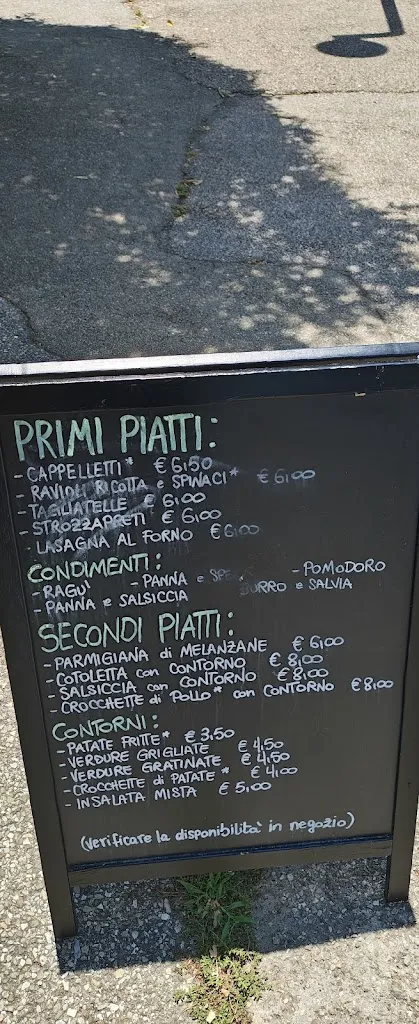 PRIMI PIATTI:
- CAPPELLETTI* € 6,50
- RAVIOLI RICOTTA e SPINACI* € 6,00
- TAGLIATELLE € 6,00
- STROZZAPRETI € 6,00
- LASAGNA AL FORNO € 6,00
CONDIMENTI:
- RAGU' - PANNA e - POMODORO
- PANNA e SALSICCIA BURRO e SALVIA
SECONDI PIATTI:
- PARMIGIANA di MELANZANE € 6,00
- COTOLETTA con CONTORNO € 8,00
- SALSICCIA con CONTORNO € 8,00
- CROCCHETTE di POLLO* con CONTORNO € 8,00
CONTORNI:
- PATATE FRITTE* € 3,50
- VERDURE GRIGLIATE € 4,50
- VERDURE GRATINATE € 4,50
- CROCCHETTE di PATATE* € 4,00
- INSALATA MISTA € 5,00
(verificare la disponibilità in negozio)